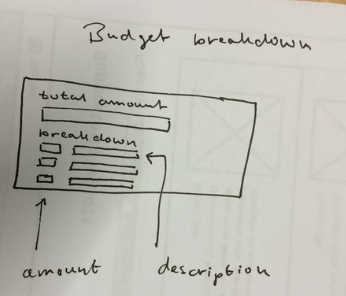 Budget breakdown
total amount
breakdown
amount
description